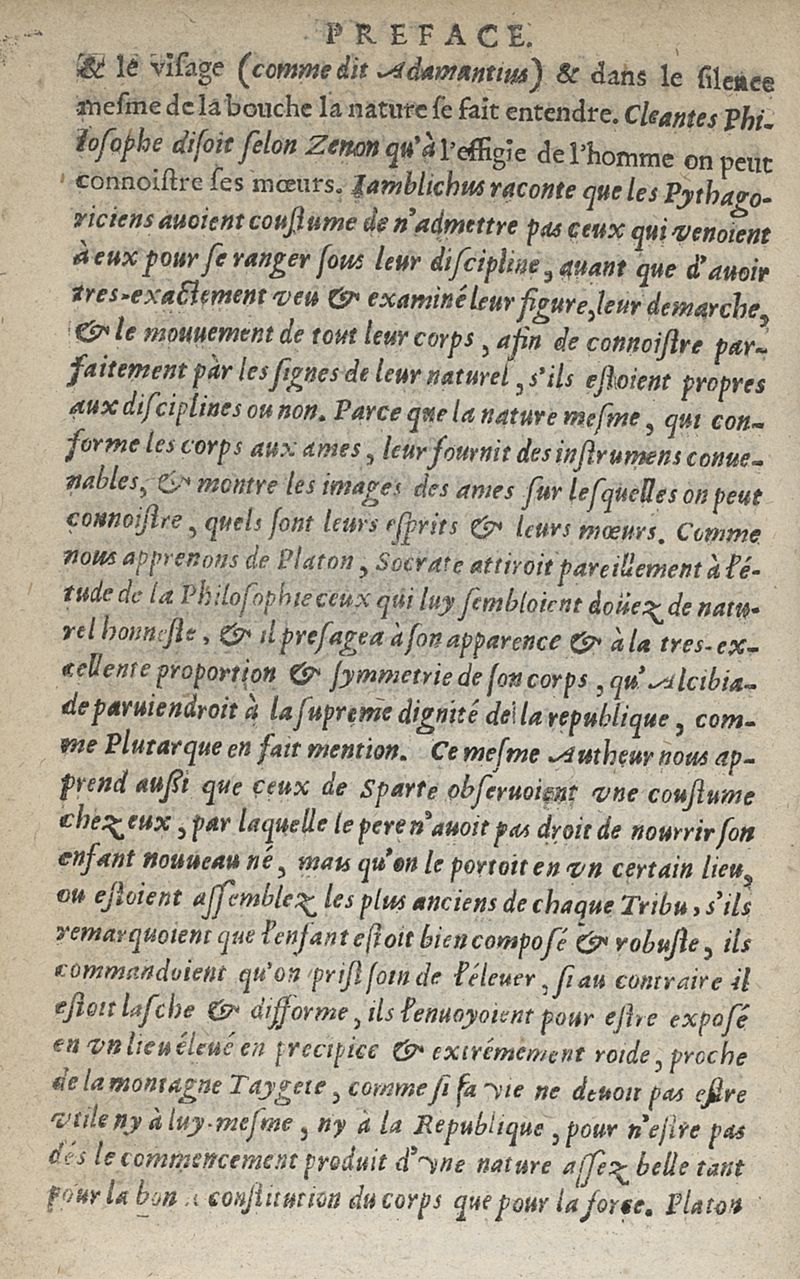 PREFACE.
& le visage (comme dit Adamantius) & dans le silence
mesme de la bouche la nature se fait entendre. Cleantes Phi-
losophe disoit selon Zenon qu'à l'effigie de l'homme on peut
connoistre ses mœurs. Iamblichus raconte que les Pythago-
riciens auoient coustume de n'admettre pas ceux qui venoient
à eux pour se ranger sous leur discipline, auant que d'auoir
tres-exactement veu & examiné leur figure, leur demarche,
& le mouuement de tout leur corps, afin de connoistre par-
faitement par les signes de leur naturel, s'ils estoient propres
aux disciplines ou non. Parce que la nature mesme, qui con-
forme les corps aux ames, leur fournit des instrumens conue-
nables, & montre les images des ames sur lesquelles on peut
connoistre, quels sont leurs esprits & leurs mœurs. Comme
nous apprenons de Platon, Socrate attiroit pareillement à l'é-
tude de la Philosophie ceux qui luy sembloient doüez de natu-
rel honneste, & il presagea à son apparence & à la tres-ex-
cellente proportion & symmetrie de son corps, qu'Alcibia-
de paruiendroit à la supreme dignité de la republique, com-
me Plutarque en fait mention. Ce mesme Autheur nous ap-
prend aussi que ceux de Sparte obseruoient vne coustume
chez eux, par laquelle le pere n'auoit pas droit de nourrir son
enfant nouueau né, mais qu'on le portoit en vn certain lieu,
ou estoient assemblez les plus anciens de chaque Tribu, s'ils
remarquoient que l'enfant estoit bien composé & robuste, ils
commandoient qu'on prist soin de l'éleuer, si au contraire il
estoit lasche & difforme, ils l'enuoyoient pour estre exposé
en vn lieu éleué en precipice & extrémement roide, proche
de la montagne Taygete, comme si sa vie ne deuoit pas estre
vtile ny à luy-mesme, ny à la Republique, pour n'estre pas
dés le commencement produit d'vne nature assez belle tant
pour la bonne constitution du corps que pour la force. Platon